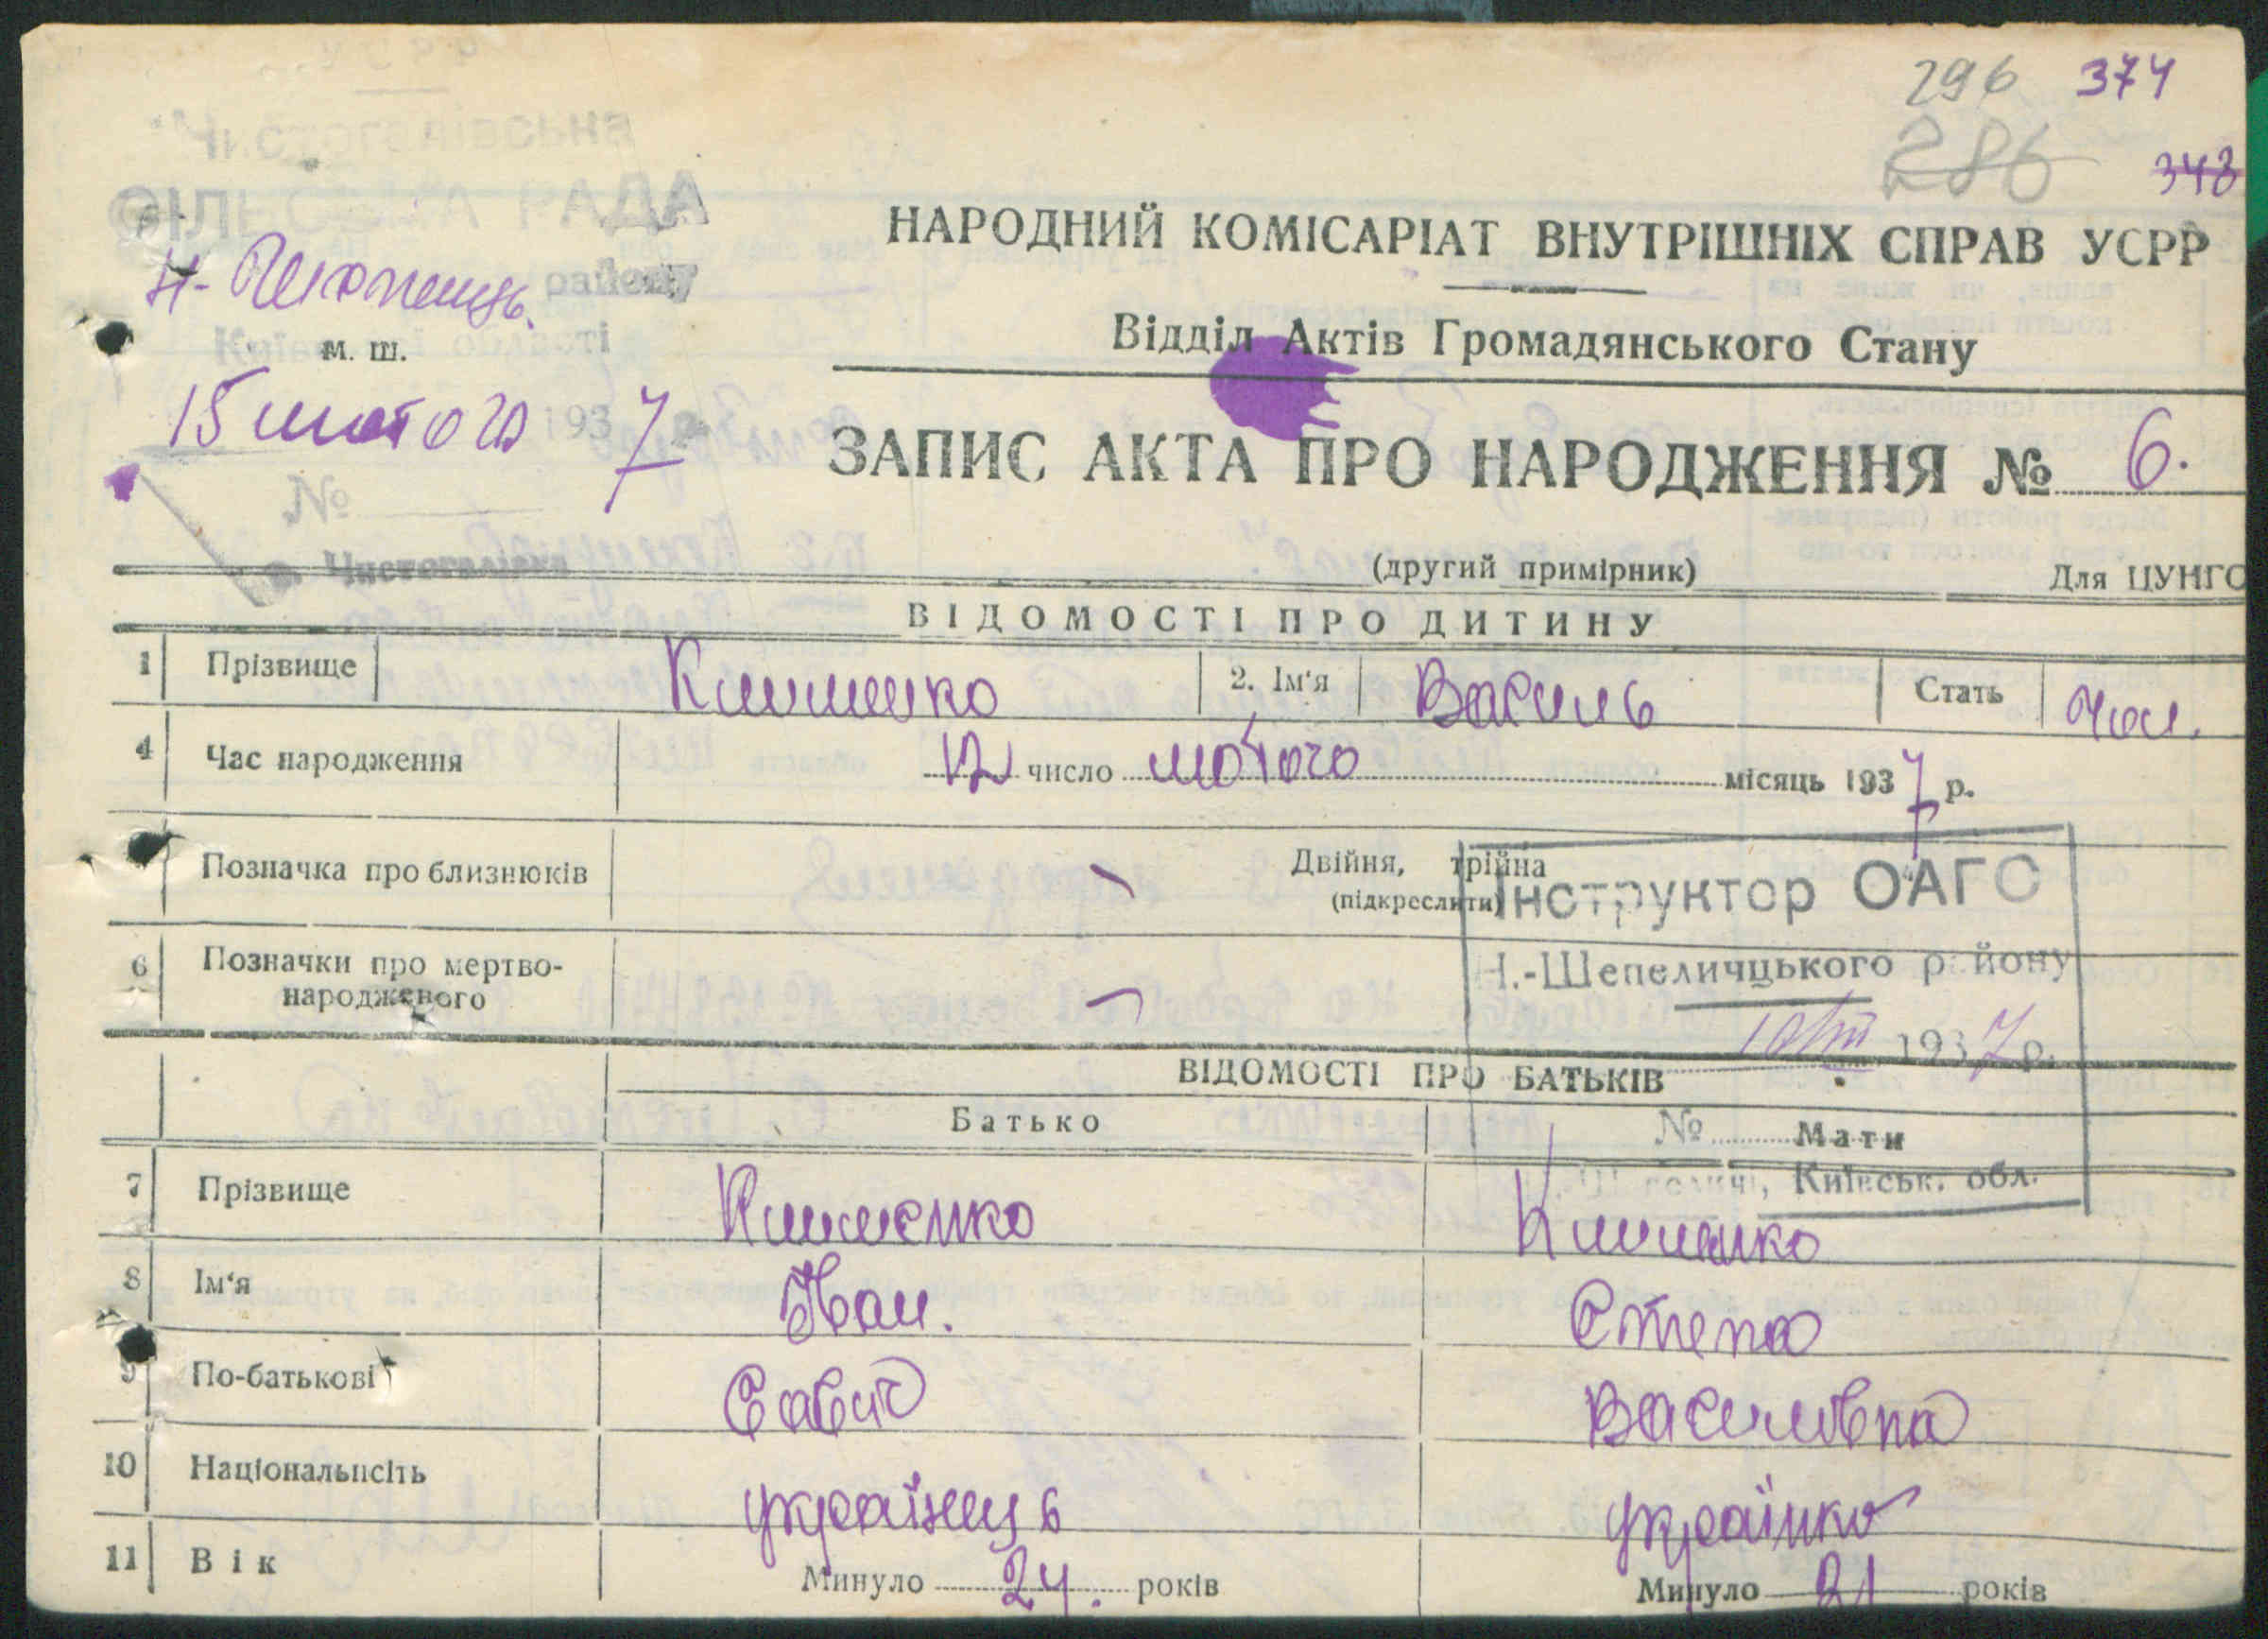 296 374
286 348
Чистогалівська
СІЛЬСЬКА РАДА
Н-Шепелиць. району
Київської області
м. ш.
15 лютого 1937 р.
№
с. Чистогалівка
НАРОДНИЙ КОМІСАРІАТ ВНУТРІШНІХ СПРАВ УСРР
Відділ Актів Громадянського Стану
ЗАПИС АКТА ПРО НАРОДЖЕННЯ № 6.
(другий примірник) Для ЦУНГО
ВІДОМОСТІ ПРО ДИТИНУ
1 Прізвище Клименко 2. Ім'я Василь Стать чол.
4 Час народження 12 число лютого місяць 1937 р.
Позначка про близнюків Двійня, трійна
(підкреслити)
6 Позначки про мертво-
народженого
Інструктор ОАГС
Н.-Шепеличцького району
1937 р.
№
Київськ. обл.
ВІДОМОСТІ ПРО БАТЬКІВ
Батько Мати
7 Прізвище Клименко Клименко
8 Ім'я Іван. Степа
9 По-батькові Савич Василовна
10 Національність українець українка
11 Вік Минуло 24. років Минуло 21 років